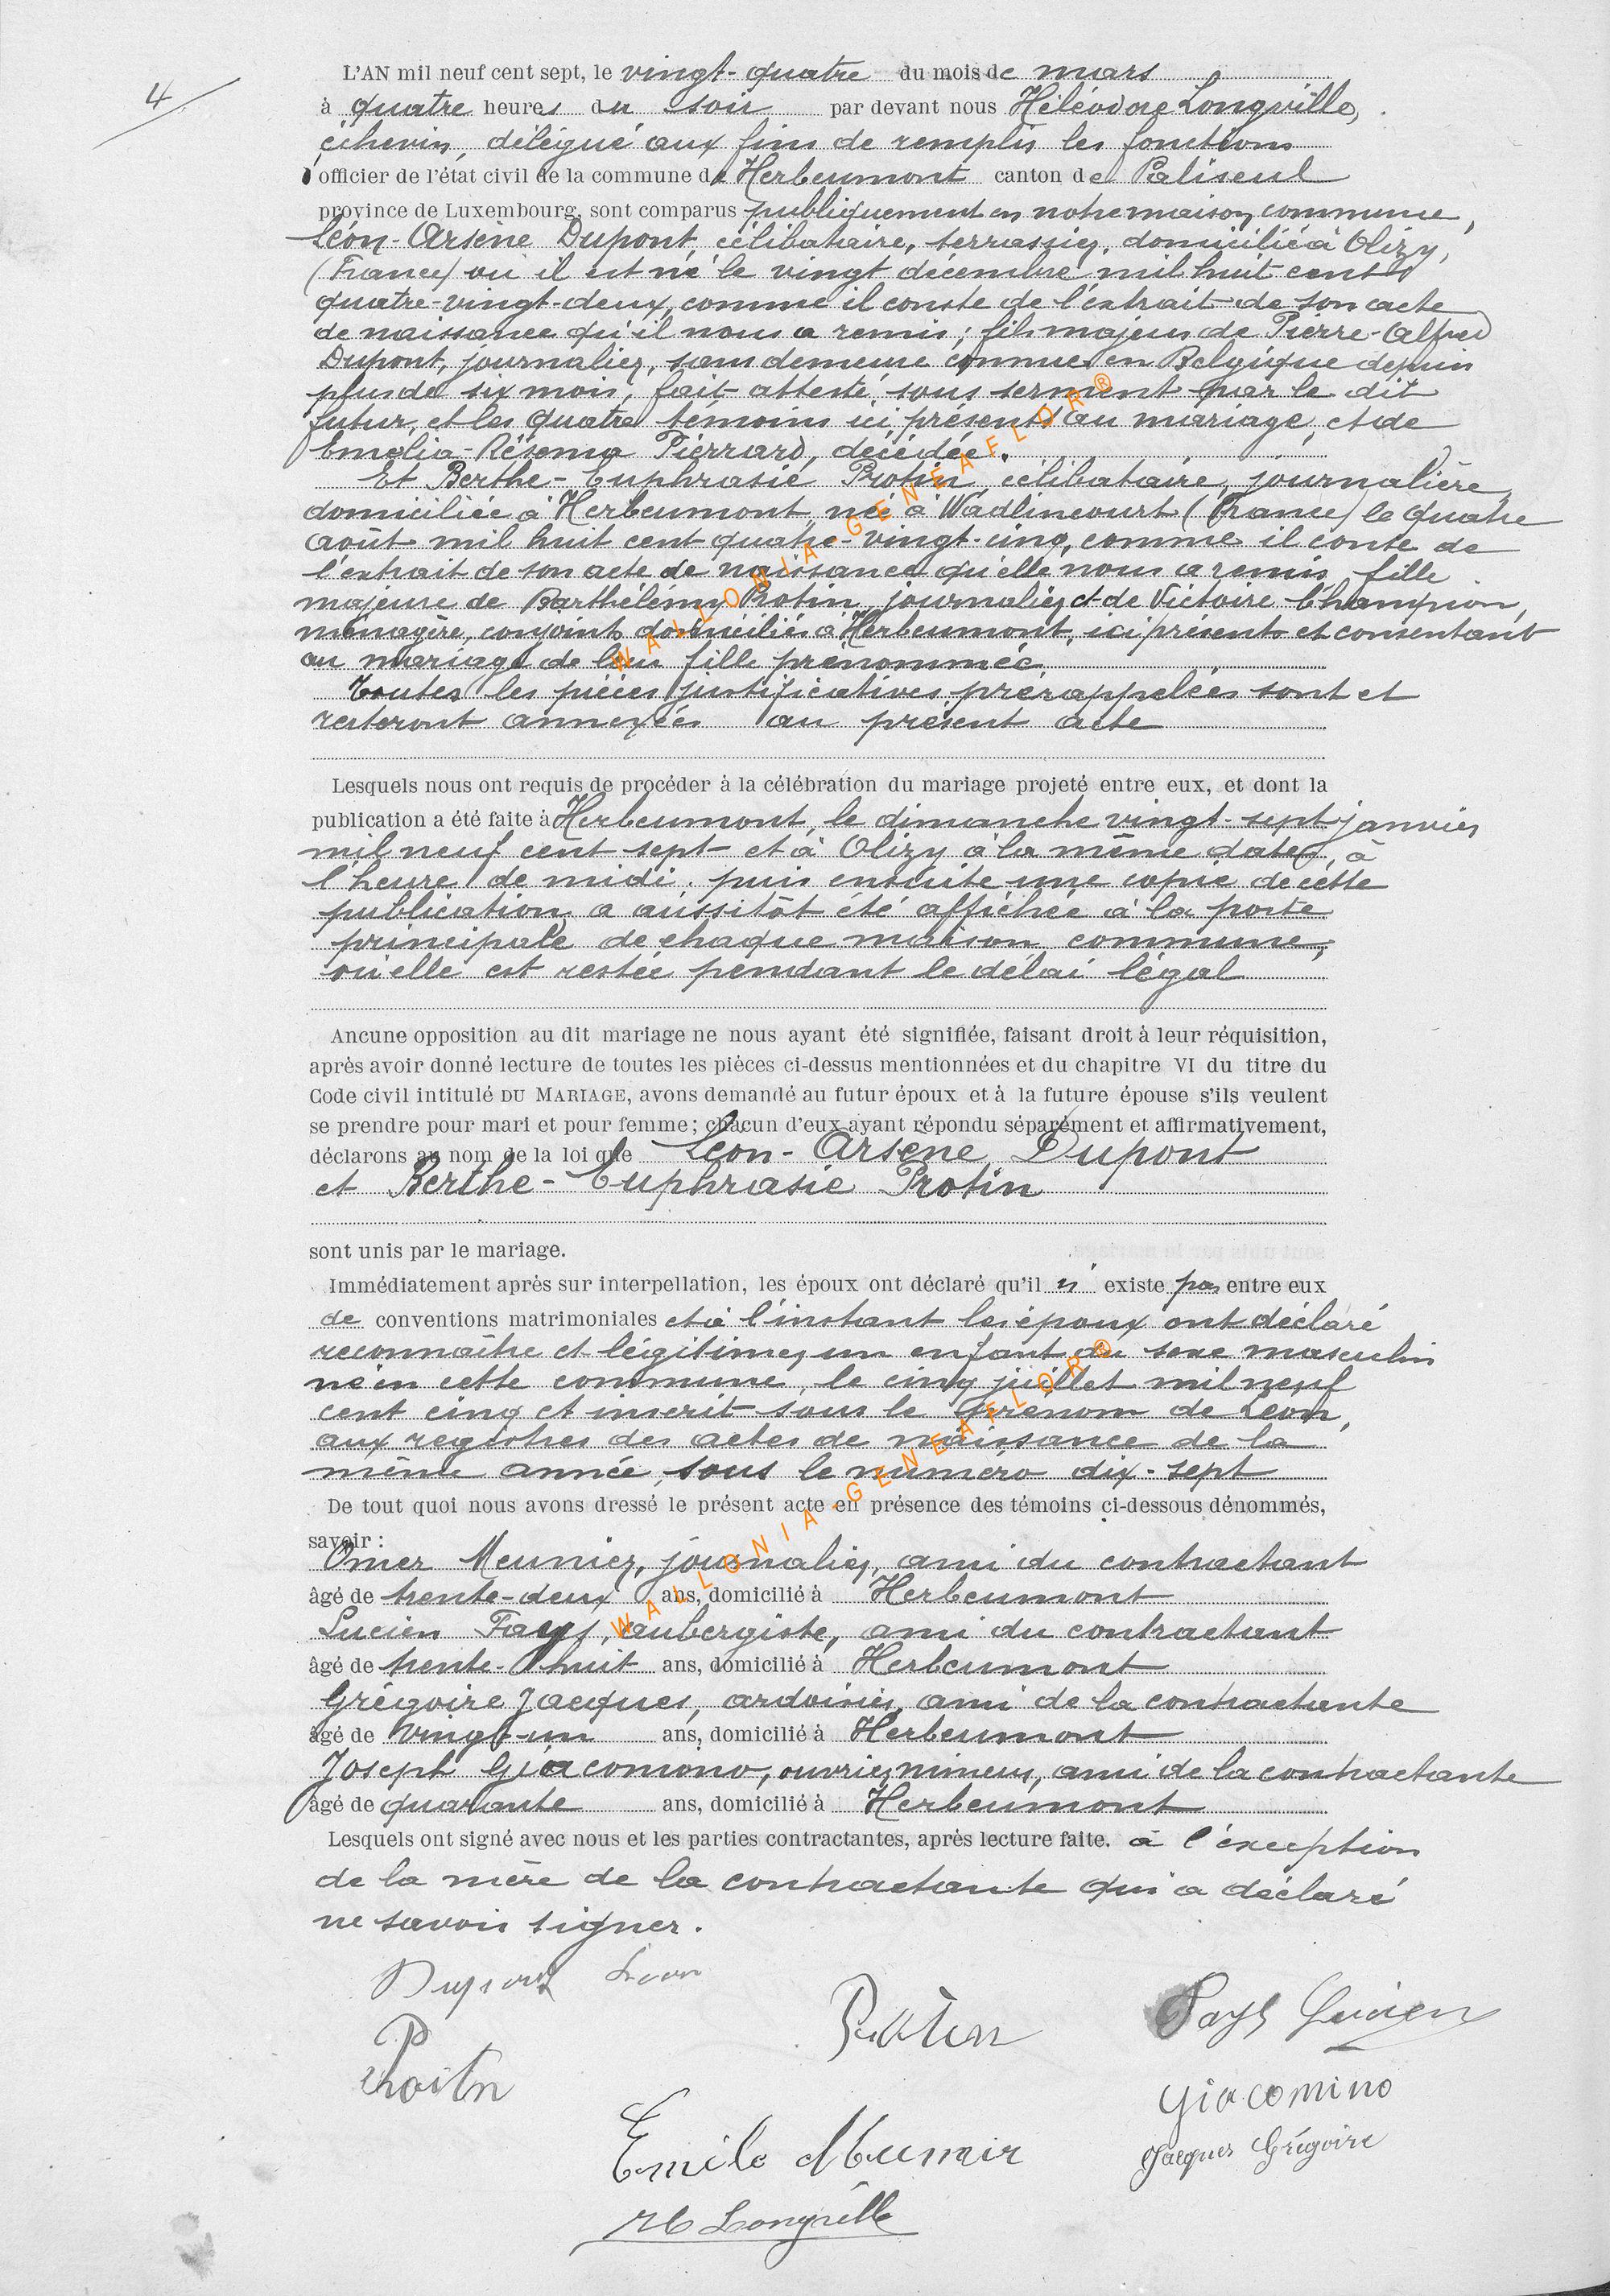 4
L'AN mil neuf cent sept, le vingt-quatre du mois de mars
à quatre heures du soir par devant nous Héléodore Longville,
échevin, délégué aux fins de remplir les fonctions
officier de l'état civil de la commune de Herbeumont canton de Paliseul
province de Luxembourg, sont comparus publiquement en notre maison commune,
Léon-Arsène Dupont, célibataire, terrassier, domicilié à Olizy,
(France) où il est né le vingt décembre mil huit cent
quatre-vingt-deux, comme il conste de l'extrait de son acte
de naissance qu'il nous a remis; fils majeur de Pierre-Alfred
Dupont, journalier, sans demeure connue en Belgique depuis
plus de six mois, fait attesté sous serment par le dit
futur, et les quatre témoins ici présents au mariage, et de
Emelia-Résema Pierrard, décédée.
Et Berthe-Euphrasie Protin, célibataire, journalière,
domiciliée à Herbeumont, née à Wadlincourt (France) le quatre
août mil huit cent quatre-vingt-cinq, comme il conte de
l'extrait de son acte de naissance qu'elle nous a remis, fille
majeure de Barthélemy Protin, journalier et de Victoire Champion,
ménagère, conjoints domiciliés à Herbeumont, ici présents et consentant
au mariage de leur fille prénommée
Toutes les pièces justificatives prérappelées sont et
resteront annexées au présent acte
Lesquels nous ont requis de procéder à la célébration du mariage projeté entre eux, et dont la
publication a été faite à Herbeumont, le dimanche vingt-sept janvier
mil neuf cent sept et à Olizy à la même date, à
l'heure de midi; puis ensuite une copie de cette
publication a aussitôt été affichée à la porte
principale de chaque maison commune,
où elle est restée pendant le délai légal
Ancune opposition au dit mariage ne nous ayant été signifiée, faisant droit à leur réquisition,
après avoir donné lecture de toutes les pièces ci-dessus mentionnées et du chapitre VI du titre du
Code civil intitulé DU MARIAGE, avons demandé au futur époux et à la future épouse s'ils veulent
se prendre pour mari et pour femme; chacun d'eux ayant répondu séparément et affirmativement,
déclarons au nom de la loi que Léon-Arsène Dupont
et Berthe-Euphrasie Protin
sont unis par le mariage.
Immédiatement après sur interpellation, les époux ont déclaré qu'il n' existe pas entre eux
de conventions matrimoniales et à l'instant les époux ont déclaré
reconnaître et légitimer un enfant du sexe masculin
né en cette commune, le cinq juillet mil neuf
cent cinq et inscrit sous le prénom de Léon,
aux registres des actes de naissance de la
même année, sous le numéro dix-sept
De tout quoi nous avons dressé le présent acte en présence des témoins ci-dessous dénommés,
savoir :
Omer Meunier, journalier, ami du contractant
âgé de trente-deux ans, domicilié à Herbeumont
Lucien Fays, aubergiste, ami du contractant
âgé de trente-huit ans, domicilié à Herbeumont
Grégoire Jacques, ardoisier, ami de la contractante
âgé de vingt-un ans, domicilié à Herbeumont
Joseph Giacomino, ouvrier mineur, ami de la contractante
âgé de quarante ans, domicilié à Herbeumont
Lesquels ont signé avec nous et les parties contractantes, après lecture faite. à l'exception
de la mère de la contractante qui a déclaré
ne savoir signer.
Dupont Léon
Protin
Fays Lucien
Giacomino
Emile Meunier
Jacques Grégoire
H Longville
WALLONIA-GENEAFLOR®
WALLONIA-GENEAFLOR®